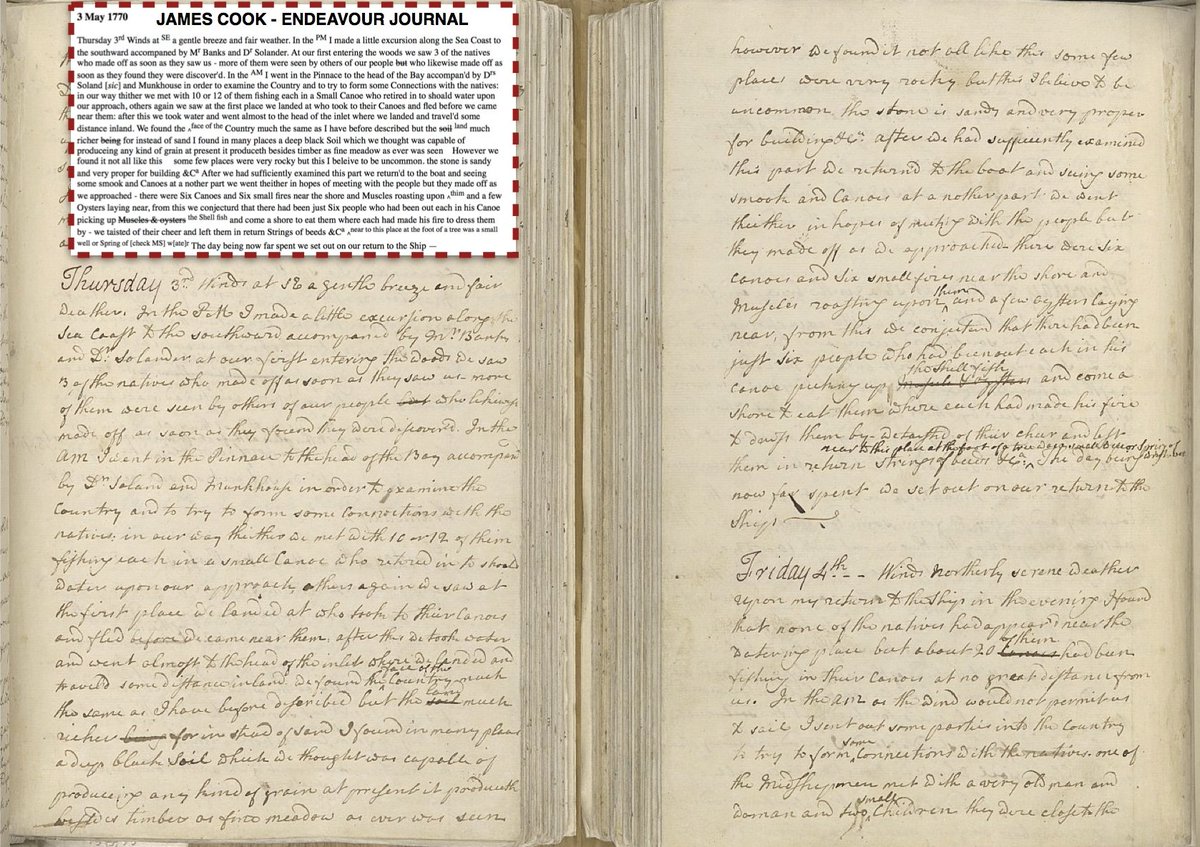 3 May 1770
JAMES COOK - ENDEAVOUR JOURNAL
Thursday 3rd Winds at SE a gentle breeze and fair weather. In the PM I made a little excursion along the Sea Coast to
the southward accompanied by Mr Banks and Dr Solander. At our first entering the woods we saw 3 of the natives
who made off as soon as they saw us - more of them were seen by others of our people but who likewise made off as
soon as they found they were discover'd. In the AM I went in the Pinnace to the head of the Bay accompan'd by Drs
Soland [sic] and Munkhouse in order to examine the Country and to try to form some Connections with the natives:
in our way thither we met with 10 or 12 of them fishing each in a Small Canoe who retired in to shoald water upon
our approach, others again we saw at the first place we landed at who took to their Canoes and fled before we came
near them: after this we took water and went almost to the head of the inlet where we landed and travel'd some
distance inland. We found the ^face of the Country much the same as I have before described but the soil land much
richer being for instead of sand I found in many places a deep black Soil which we thought was capable of
producing any kind of grain at present it produceth besides timber as fine meadow as ever was seen However we
found it not all like this some few places were very rocky but this I beleive to be uncommon. the stone is sandy
and very proper for building &Ca After we had sufficiently examined this part we return'd to the boat and seeing
some smook and Canoes at a nother part we went theither in hopes of meeting with the people but they made off as
we approached - there were Six Canoes and Six small fires near the shore and Muscles roasting upon ^thim and a few
Oysters laying near, from this we conjecturd that there had been just Six people who had been out each in his Canoe
picking up Muscles & oysters the Shell fish and come a shore to eat them where each had made his fire to dress them
by - we taisted of their cheer and left them in return Strings of beeds &Ca ^near to this place at the foot of a tree was a small
well or Spring of [check MS] w[ate]r The day being now far spent we set out on our return to the Ship —
Thursday 3rd Winds at SE a gentle breeze and fair
weather. In the PM I made a little excursion along the
Sea Coast to the southward accompanied by Mr Banks
and Dr Solander at our first entering the woods we saw
3 of the natives who made off as soon as they saw us - more
of them were seen by others of our people but who likewise
made off as soon as they found they were discover'd. In the
AM I went in the Pinnace to the head of the Bay accompan'd
by Drs Soland and Munkhouse in order to examine the
Country and to try to form some Connections with the
natives: in our way theither we met with 10 or 12 of them
fishing each in a small Canoe who retired in to shoald
water upon our approach, others again we saw at
the first place we landed at who took to their Canoes
and fled before we came near them. after this we took water
and went almost to the head of the inlet where we landed and
travel'd some distance inland. we found the ^face of the Country much
the same as I have before described but the soil land much
richer being for instead of sand I found in many places
a deep black Soil which we thought was capable of
produceing any kind of grain at present it produceth
besides timber as fine meadow as ever was seen
however we found it not all like this some few
places were very rocky but this I beleive to be
uncommon the stone is sandy and very proper
for building &Ca. after we had sufficiently examined
this part we return'd to the boat and seeing some
smook and Canoes at a nother part we went
theither in hopes of meeting with the people but
they made off as we approached - there were six
canoes and six small fires near the shore and
Muscles roasting upon ^them and a few oysters laying
near, from this we conjecturd that there had been
just six people who had been out each in his
canoe picking up Muscles & oysters the Shell fish and come a
shore to eat them where each had made his fire
to dress them by - we taisted of their chear and left
them in return Strings of beeds &Ca. ^near to this place at the foot of a tree was a small well or Spring of The day being
now far spent we set out on our return to the
Ship
Friday 4th - Winds Northerly serene weather
upon my return to the Ship in the evening I found
that none of the natives had appear'd near the
watering place but about 20 Canoes of them had been
fishing in their Canoes at no great distance from
us. In the AM as the wind would not permit us
to sail I sent out some parties into the Country
to try to form some Connections with the natives. one of
the Midshipmen met with a very old man and
woman and two small Children they were close to the